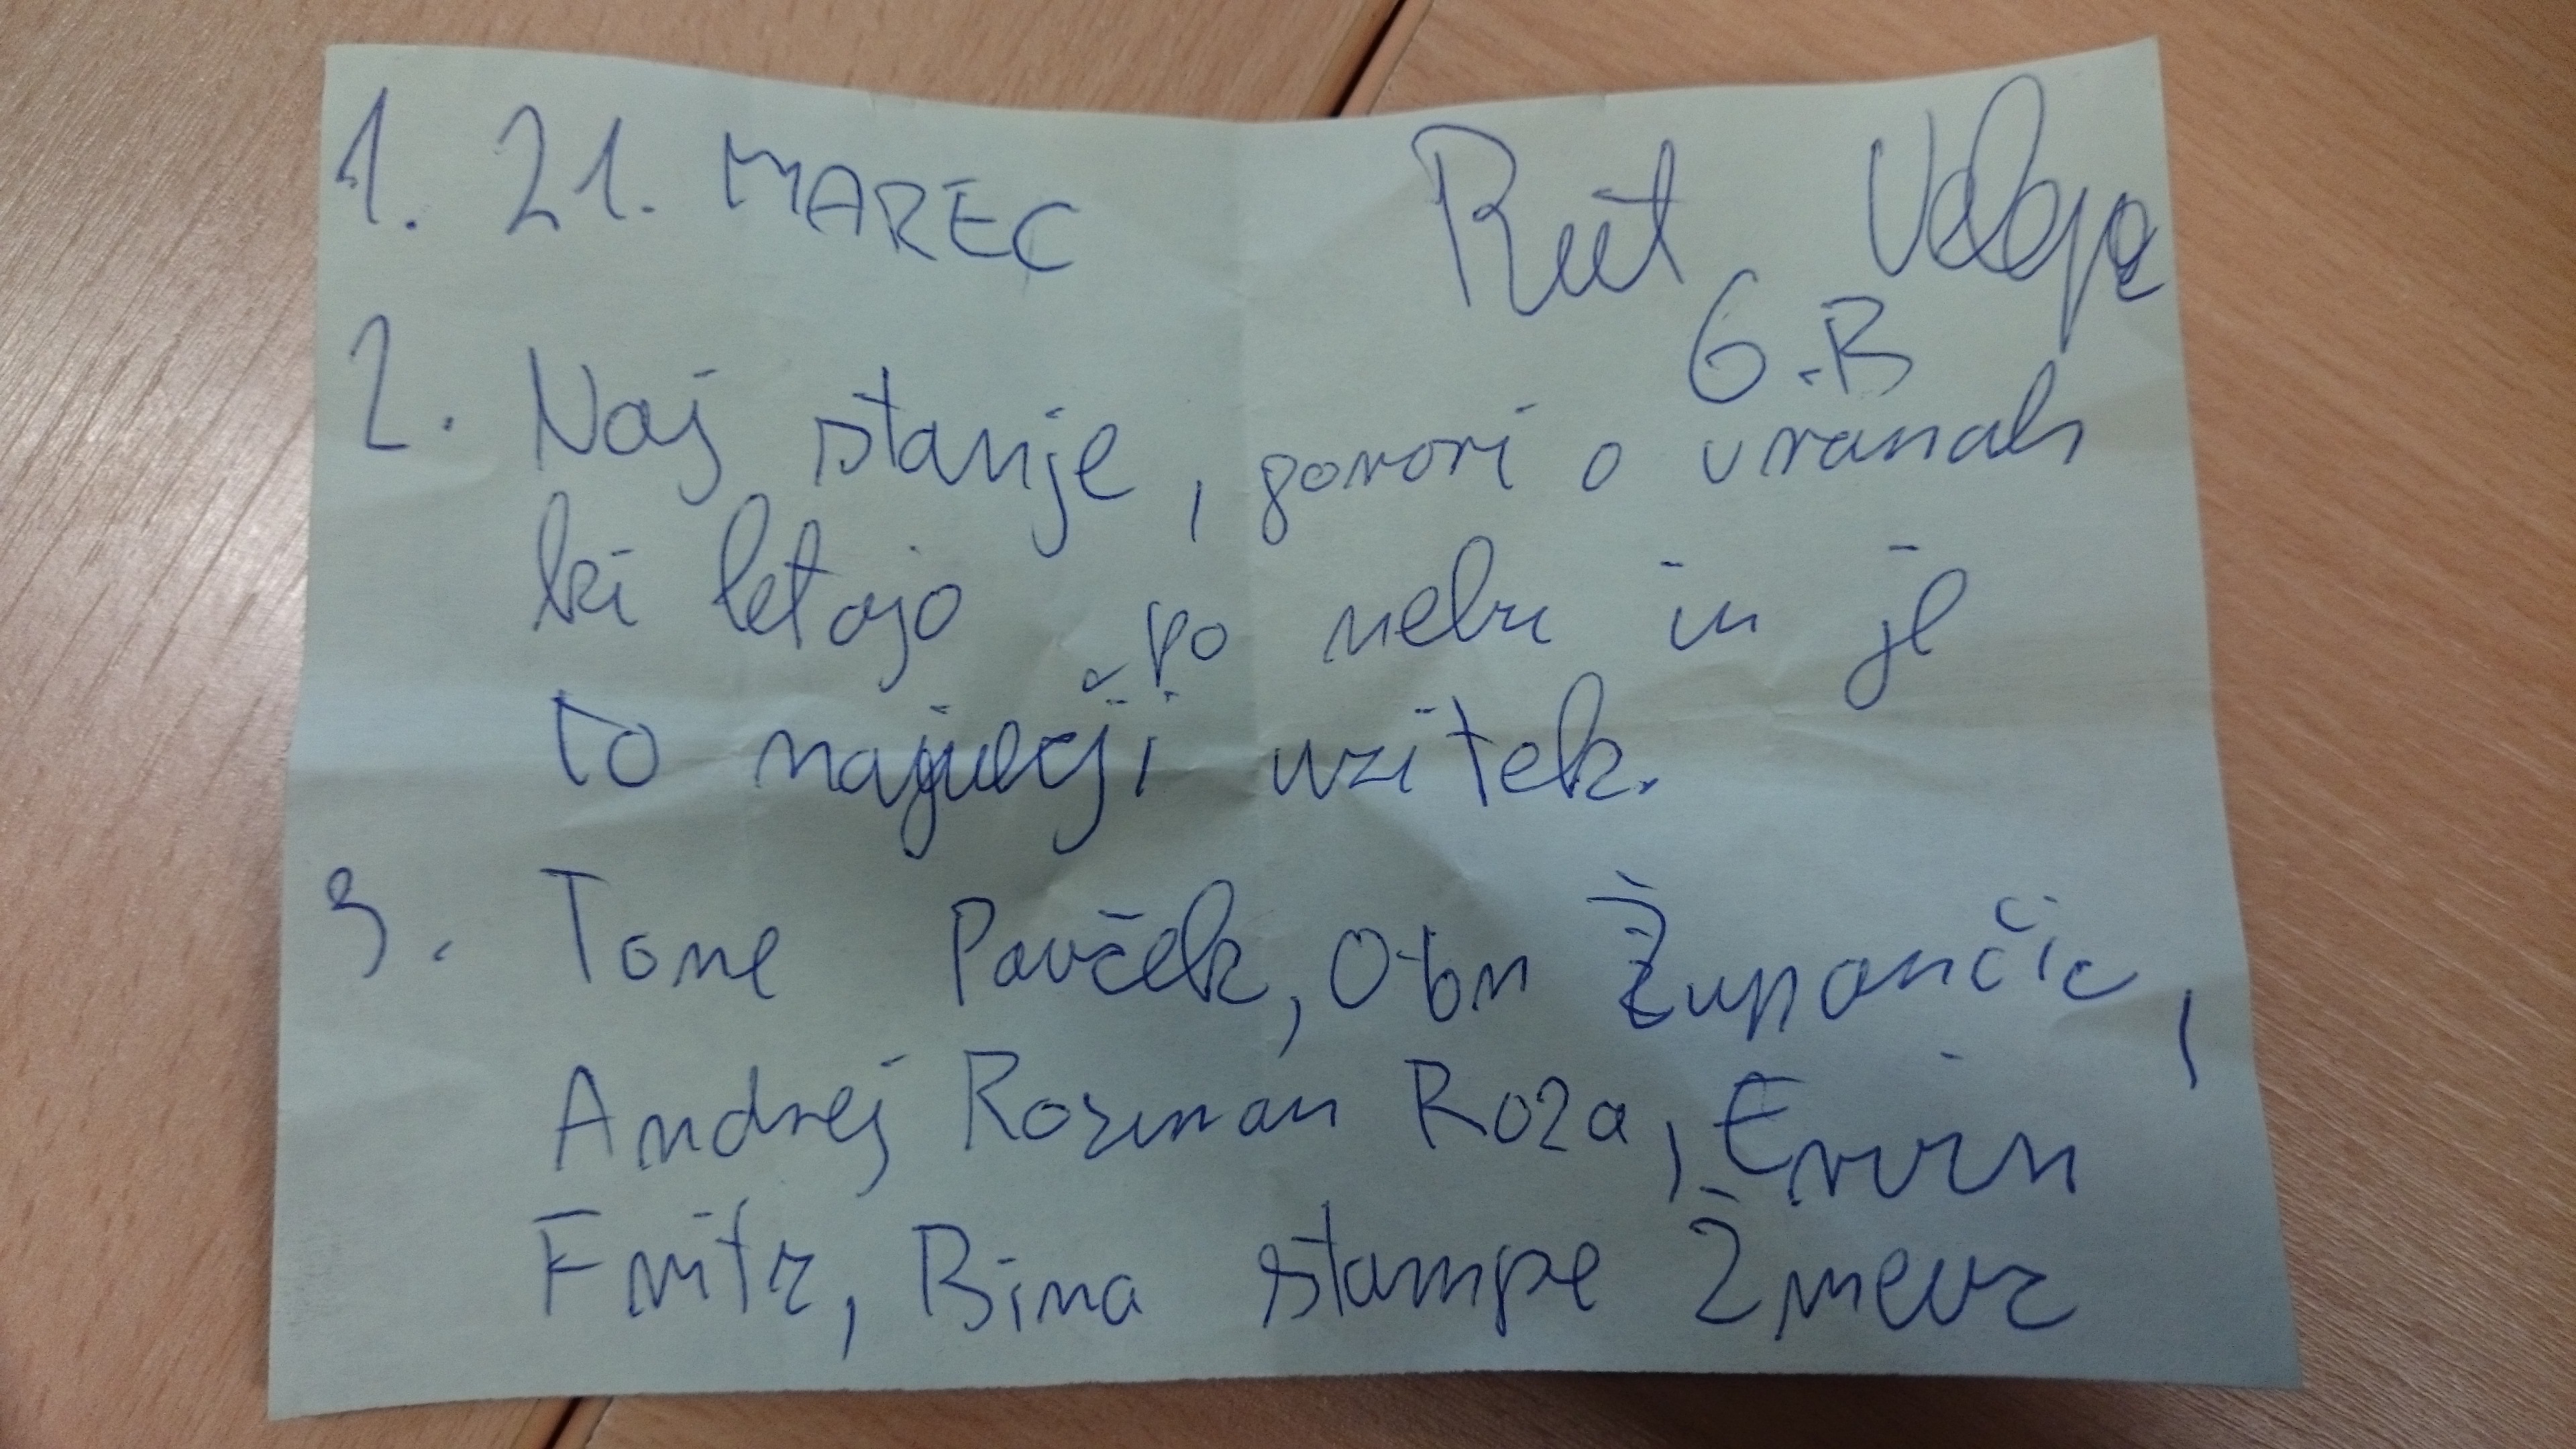 1. 21. MAREC Rut
6.B
2. Naj stanje, govori o vranah
ki letajo po nebu in je
to največji uzitek.
3. Tone Pavček, Oton Župančic,
Andrej Rozman Roza, Ervin
Fritz, Bina stampe Žmavc